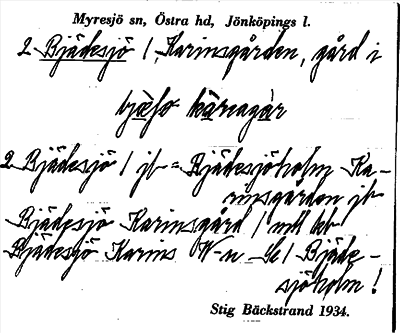 Myresjö sn, Östra hd, Jönköpings l.
2 Bjädesjö 1, Karinsgården, gård i
bjæso karnagar
2 Bjädesjö 1 jb = Bjädesjöholm Ka-
rinsgården jb
Bjädesjö Karinsgård / mtl kb
Bjädesjö Karins W-n Se! Bjäde-
sjöholm!
Stig Bäckstrand 1934.